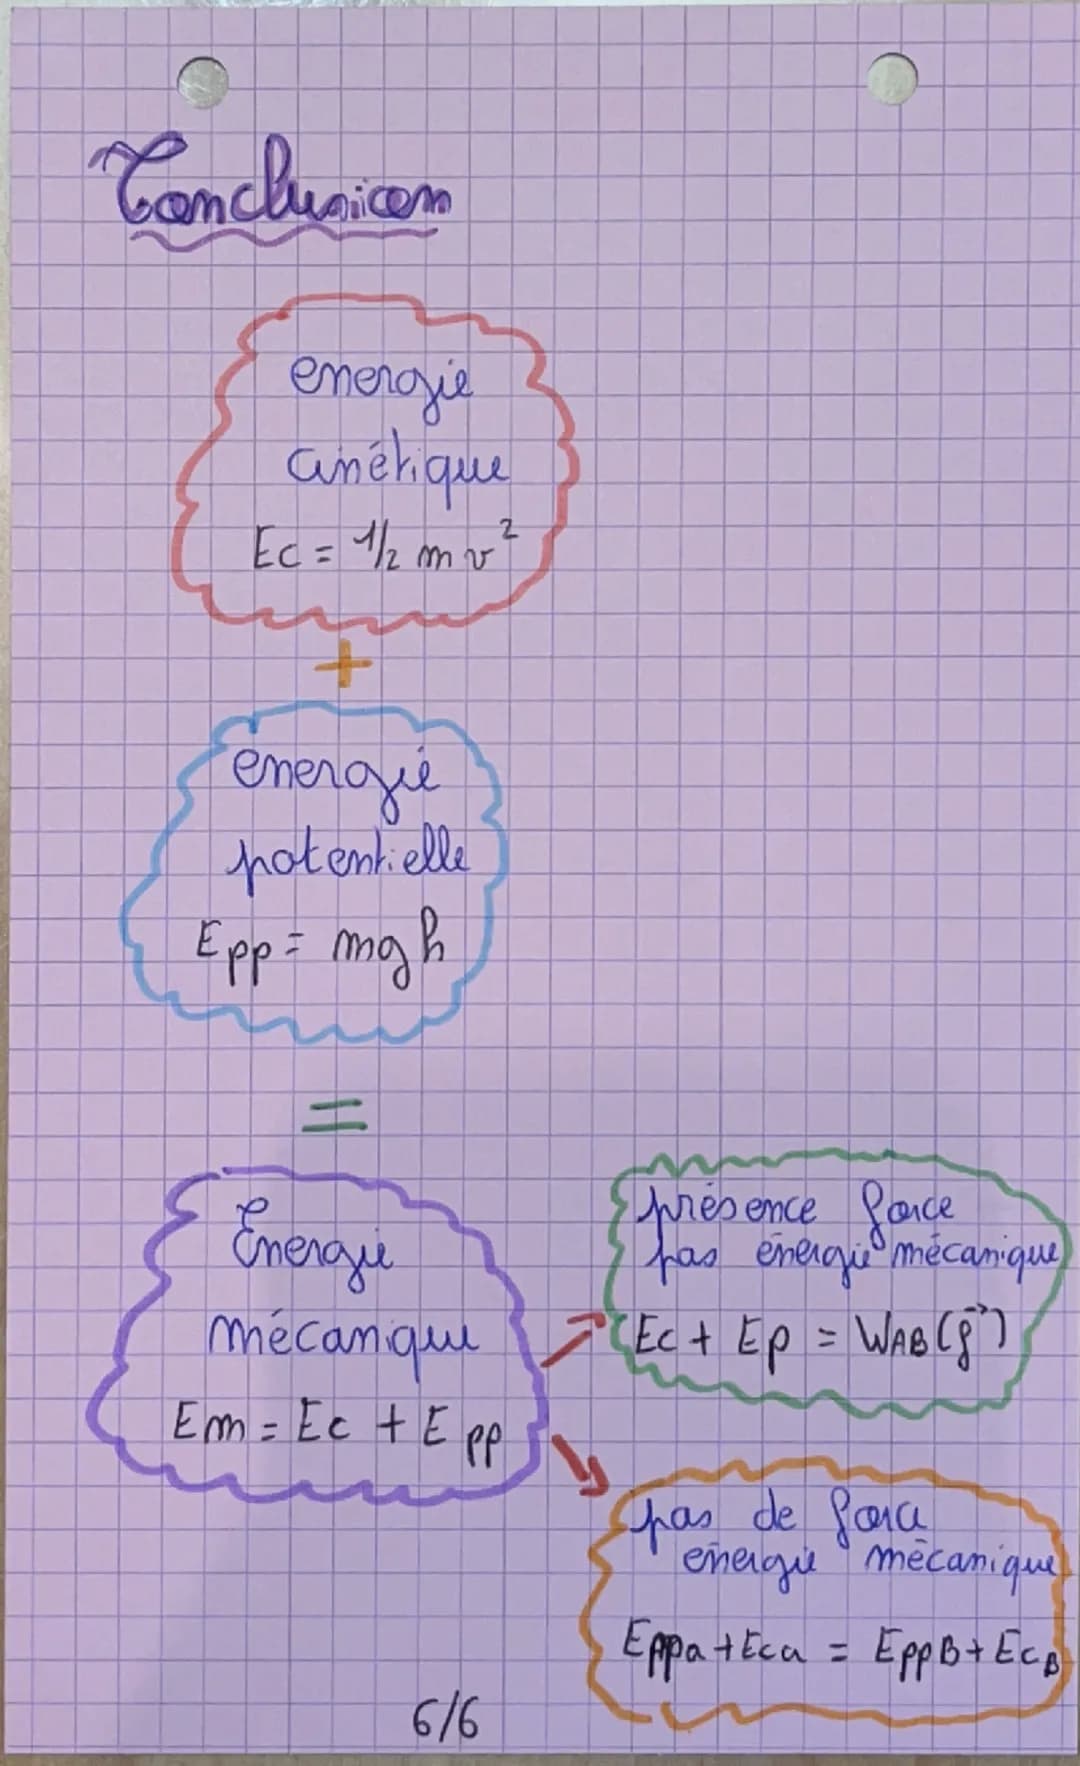 Conclusion
energie
cinétique
Ec = 1/2 m v²
+
energie
potentielle
Epp = mgh
=
Énergie
mécanique
Em = Ec + Epp
présence force
pas énergie mécanique
Ec + Ep = WAB(f→)
pas de force
énergie mécanique
Eppa + Eca = EppB + EcB
6/6